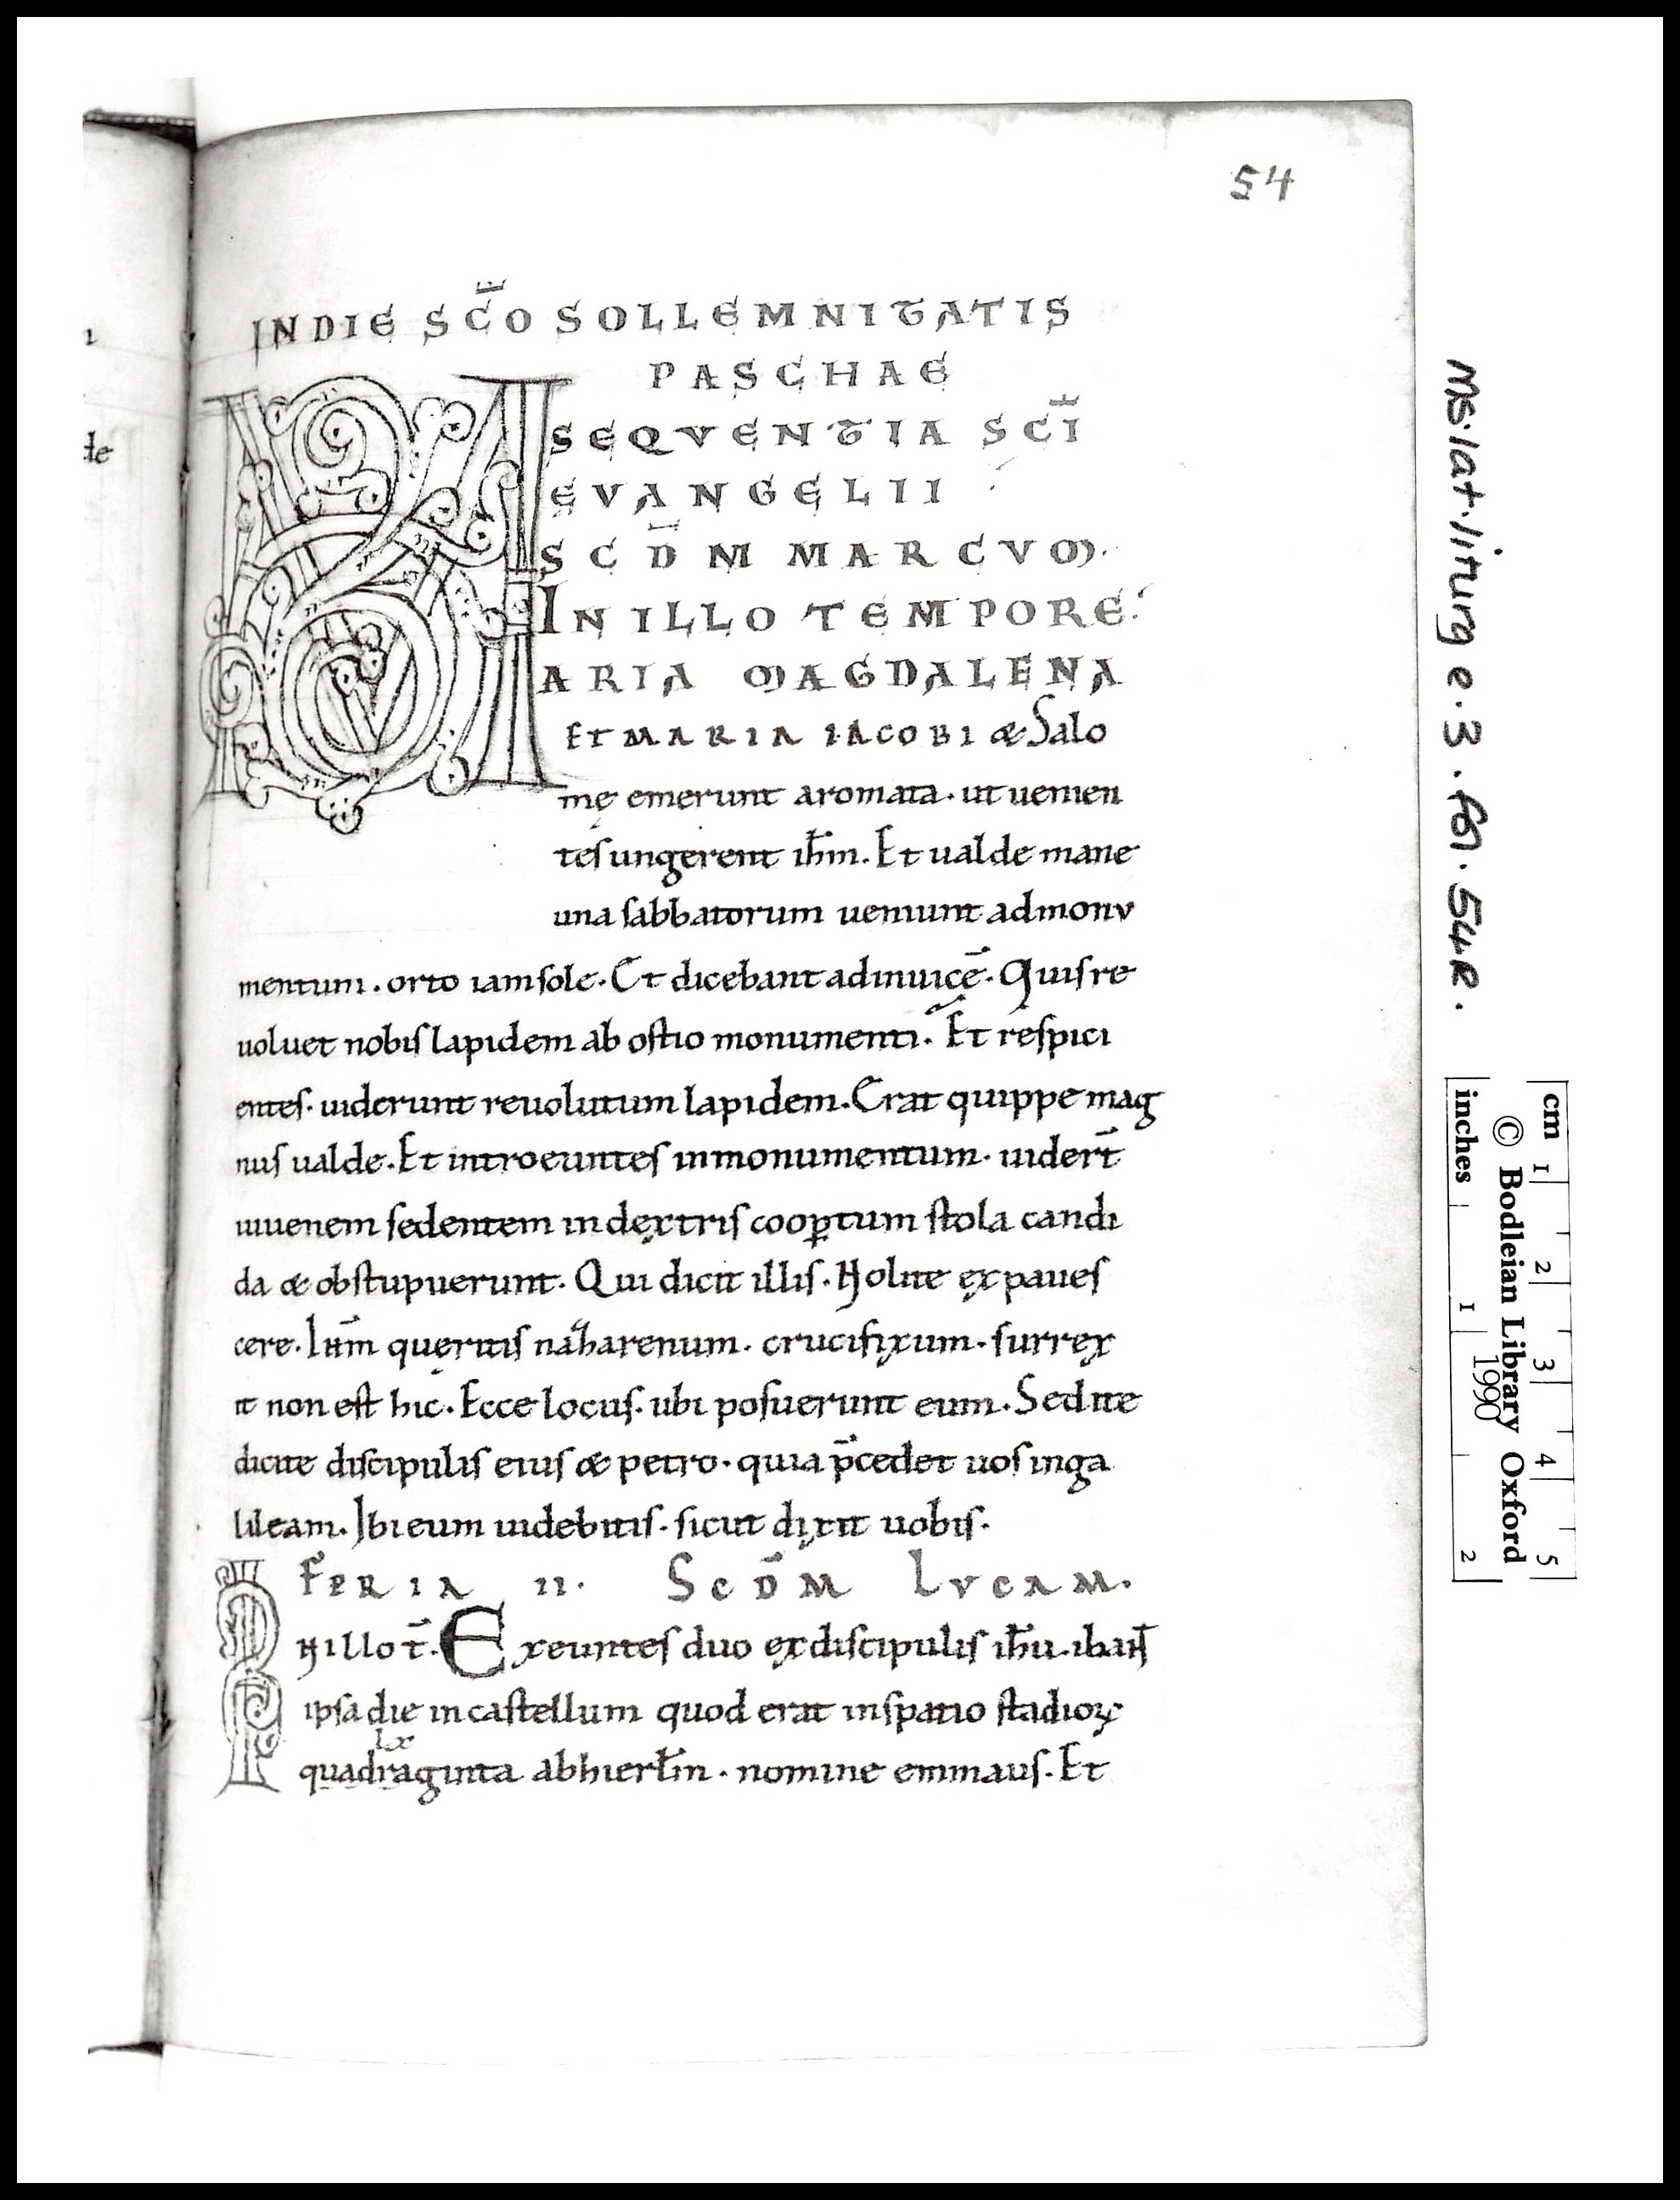 54
INDIE SC̄O SOLLEMNITATIS
PASCHAE
SEQVENTIA SC̄I
EVANGELII
SCD̄M MARCVM.
IN ILLO TEMPORE.
MARIA MAGDALENA
ET MARIA IACOBI & Salo
mę emerunt aromata. ut uenien
tes ungerent ih̄m. Et ualde mane
una sabbatorum ueniunt admonv
mentum. orto iam sole. Et dicebant adinuicē. Quis re
uoluet nobis lapidem ab ostio monumenti. Et respici
entes. uiderunt reuolutum lapidem. Erat quippe mag
nus ualde. Et introeuntes inmonumentum. uider̄t
iuuenem sedentem indextris coop̱tum stola candi
da & obstupuerunt. Qui dicit illis. Nolite expaues
cere. Ih̄m queritis nazarenum. crucifixum. surrex
it non est hic. Ecce locus. ubi posuerunt eum. Sed ite
dicite discipulis eius & petro. quia p̄cedet uos inga
lileam. Ibi eum uidebitis. sicut dixit uobis.
FERIA II. SCD̄M LVCAM.
IN illo t̄. Exeuntes duo exdiscipulis ih̄u. ibant
ipsa die incastellum quod erat inspatio stadioꝝ
lx
quadraginta abhierl̄m. nomine emmaus. Et
de
Ms. lat. liturg e. 3. fol. 54R.
cm 1 2 3 4 5
© Bodleian Library Oxford
1990
inches 1 2